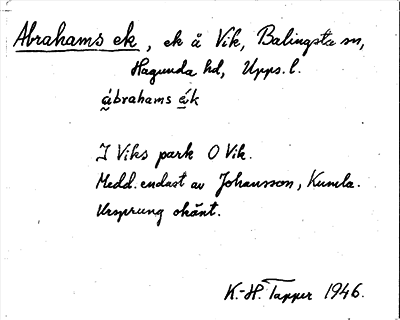 Abrahams ek, ek å Vik, Balingsta sn,
Hagunda hd, Upps. l.
ábrahams ä́k
I Viks park O Vik.
Medd. endast av Johansson, Kumla.
Ursprung okänt.
K.-H. Tapper 1946.